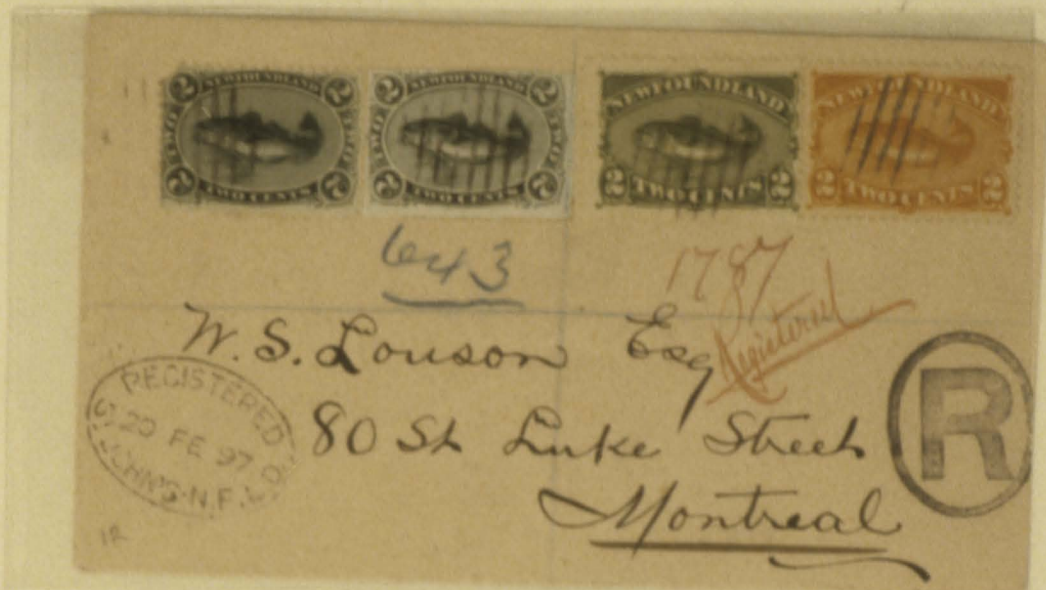 2 NEWFOUNDLAND 2
TWO TWO
2 TWO CENTS 2
2 NEWFOUNDLAND 2
TWO TWO
2 TWO CENTS 2
NEWFOUNDLAND
2 TWO CENTS 2
NEWFOUNDLAND
2 TWO CENTS 2
643
1787
Registered
W. S. Louson Esq
80 St Luke Street
Montreal
REGISTERED
20 FE 97
ST. JOHN'S. N.F.L.D.
R
12